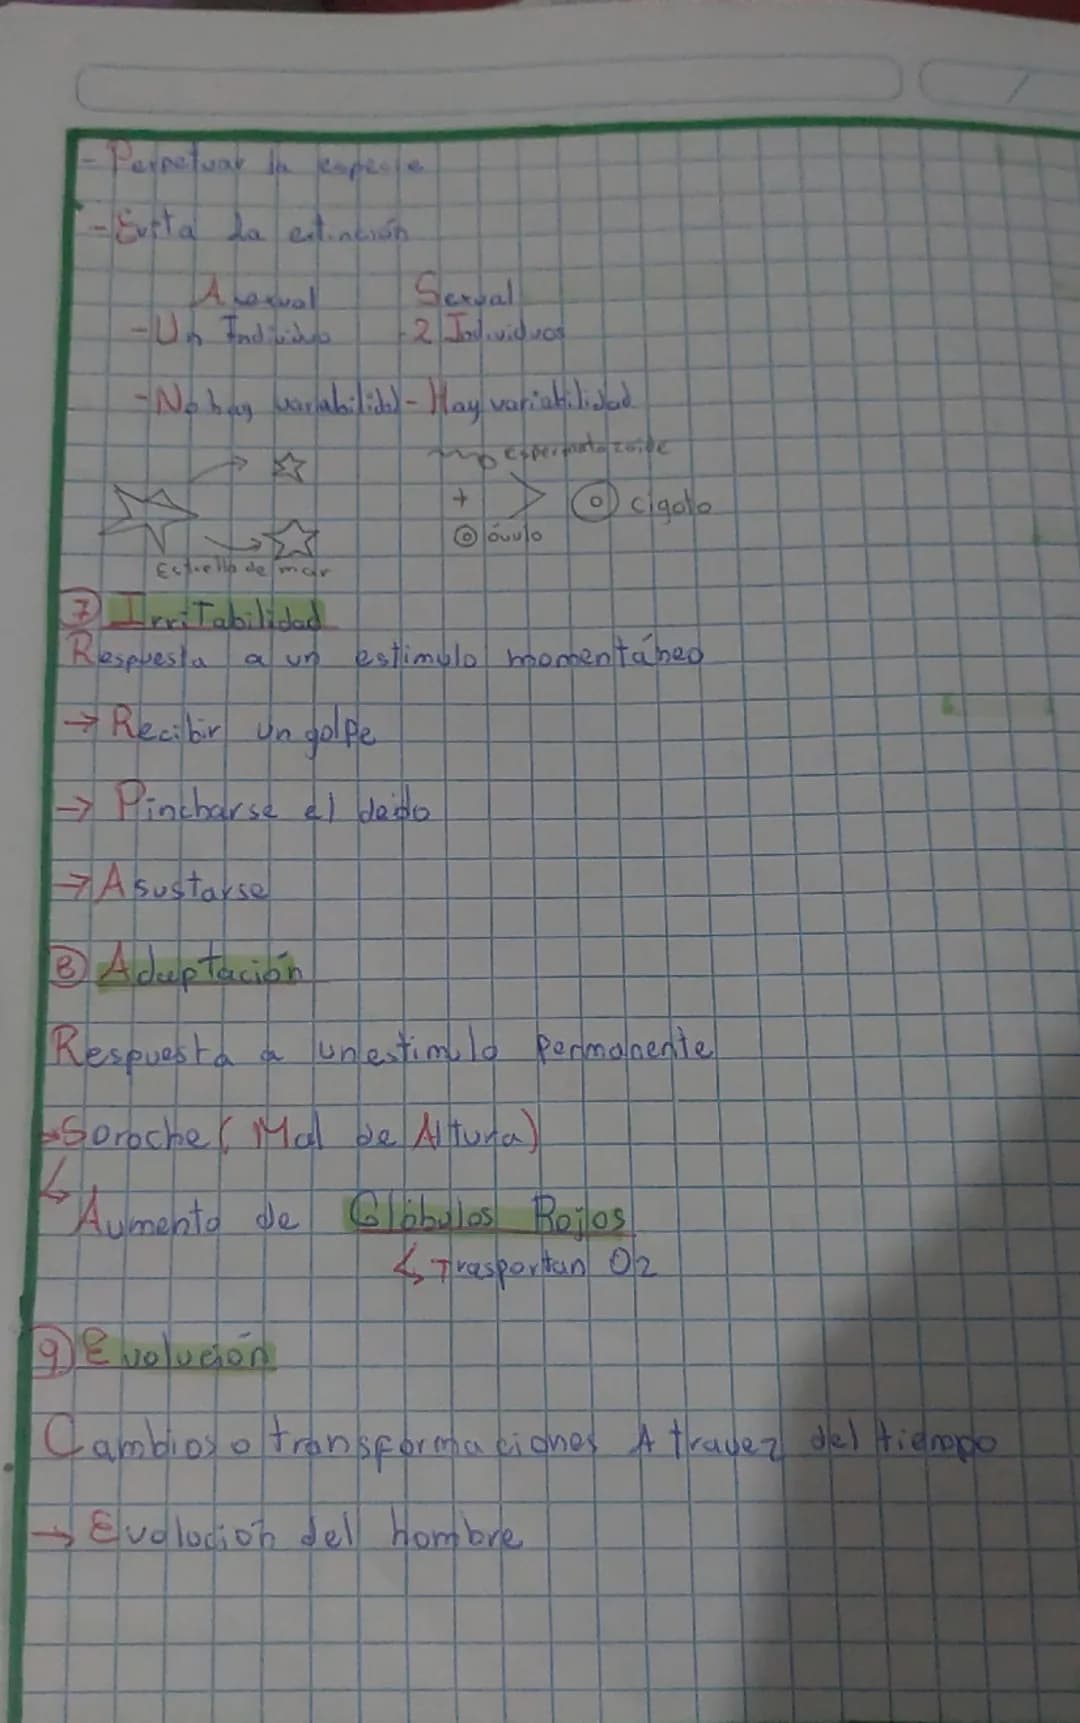 - Perpetuar la especie
- Evita la extinción
Asexual Sexual
- Un Individuo - 2 Individuos
- No hay variabilidad - Hay variabilidad
espermatozoide
+
cigoto
óvulo
Estrella de mar
7 Irritabilidad
Respuesta a un estimulo momentáneo
→ Recibir un golpe
→ Pincharse el dedo
→ Asustarse
8 Adaptación
Respuesta a un estimulo permanente
→ Soroche (Mal de Altura)
↳ Aumento de Glóbulos Rojos
↳ Trasportan O2
9) Evolución
Cambios o transformaciones A travez del tiempo
→ Evolocion del hombre